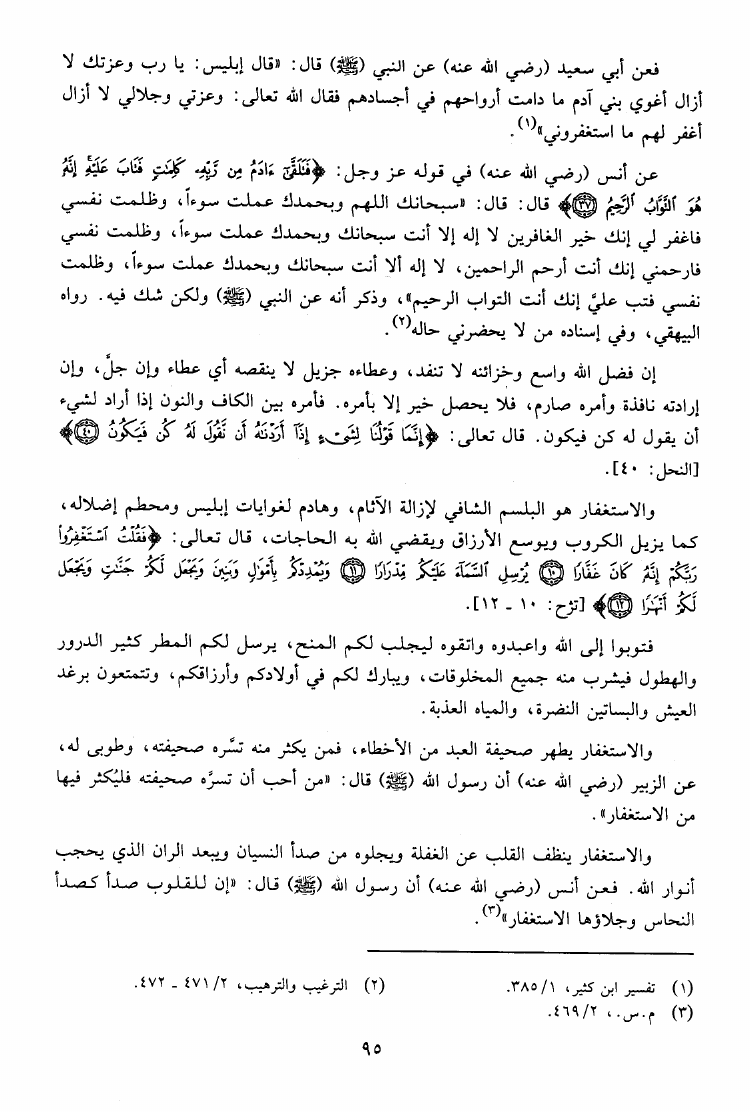 فعن أبي سعيد (رضي الله عنه) عن النبي (ﷺ) قال: «قال إبليس: يا رب وعزتك لا
أزال أغوي بني آدم ما دامت أرواحهم في أجسادهم فقال الله تعالى: وعزتي وجلالي لا أزال
أغفر لهم ما استغفروني»(١).
عن أنس (رضي الله عنه) في قوله عز وجل: ﴿فَتَلَقَّىٰٓ ءَادَمُ مِن رَّبِّهِۦ كَلِمَٰتٍ فَتَابَ عَلَيْهِۚ إِنَّهُۥ
هُوَ ٱلتَّوَّابُ ٱلرَّحِيمُ ٣٧﴾ قال: قال: «سبحانك اللهم وبحمدك عملت سوءاً، وظلمت نفسي
فاغفر لي إنك خير الغافرين لا إله إلا أنت سبحانك وبحمدك عملت سوءاً، وظلمت نفسي
فارحمني إنك أنت أرحم الراحمين، لا إله ألا أنت سبحانك وبحمدك عملت سوءاً، وظلمت
نفسي فتب عليَّ إنك أنت التواب الرحيم»، وذكر أنه عن النبي (ﷺ) ولكن شك فيه. رواه
البيهقي، وفي إسناده من لا يحضرني حاله(٢).
إن فضل الله واسع وخزائنه لا تنفد، وعطاءه جزيل لا ينقصه أي عطاء وإن جلَّ، وإن
إرادته نافذة وأمره صارم، فلا يحصل خير إلا بأمره. فأمره بين الكاف والنون إذا أراد لشيء
أن يقول له كن فيكون. قال تعالى: ﴿إِنَّمَا قَوْلُنَا لِشَىْءٍ إِذَآ أَرَدْنَٰهُ أَن نَّقُولَ لَهُۥ كُن فَيَكُونُ ٤٠﴾
[النحل: ٤٠].
والاستغفار هو البلسم الشافي لإزالة الآثام، وهادم لغوايات إبليس ومحطم إضلاله،
كما يزيل الكروب ويوسع الأرزاق ويقضي الله به الحاجات، قال تعالى: ﴿فَقُلْتُ ٱسْتَغْفِرُوا۟
رَبَّكُمْ إِنَّهُۥ كَانَ غَفَّارًا ١٠ يُرْسِلِ ٱلسَّمَآءَ عَلَيْكُم مِّدْرَارًا ١١ وَيُمْدِدْكُم بِأَمْوَٰلٍ وَبَنِينَ وَيَجْعَل لَّكُمْ جَنَّٰتٍ وَيَجْعَل
لَّكُمْ أَنْهَٰرًا ١٢﴾ [نزح: ١٠ ـ ١٢].
فتوبوا إلى الله واعبدوه واتقوه ليجلب لكم المنح، يرسل لكم المطر كثير الدرور
والهطول فيشرب منه جميع المخلوقات، ويبارك لكم في أولادكم وأرزاقكم، وتتمتعون برغد
العيش والبساتين النضرة، والمياه العذبة.
والاستغفار يطهر صحيفة العبد من الأخطاء، فمن يكثر منه تسَّره صحيفته، وطوبى له،
عن الزبير (رضي الله عنه) أن رسول الله (ﷺ) قال: «من أحب أن تسرَّه صحيفته فليُكثر فيها
من الاستغفار».
والاستغفار ينظف القلب عن الغفلة ويجلوه من صدأ النسيان ويبعد الران الذي يحجب
أنوار الله. فعن أنس (رضي الله عنه) أن رسول الله (ﷺ) قال: «إن للقلوب صدأ كصدأ
النحاس وجلاؤها الاستغفار»(٣).
(١) تفسير ابن كثير، ٣٨٥/١. (٢) الترغيب والترهيب، ٤٧١/٢ ـ ٤٧٢.
(٣) م.س.، ٤٦٩/٢.
٩٥